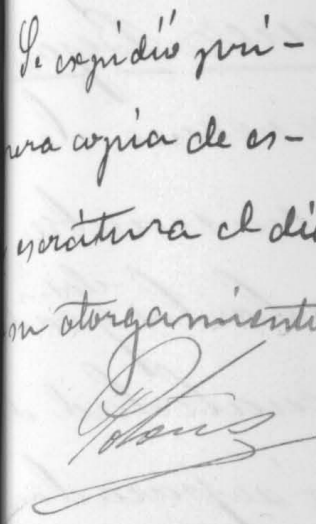 Se expidió pri-
mera copia de es-
escritura el día
su otorgamiento